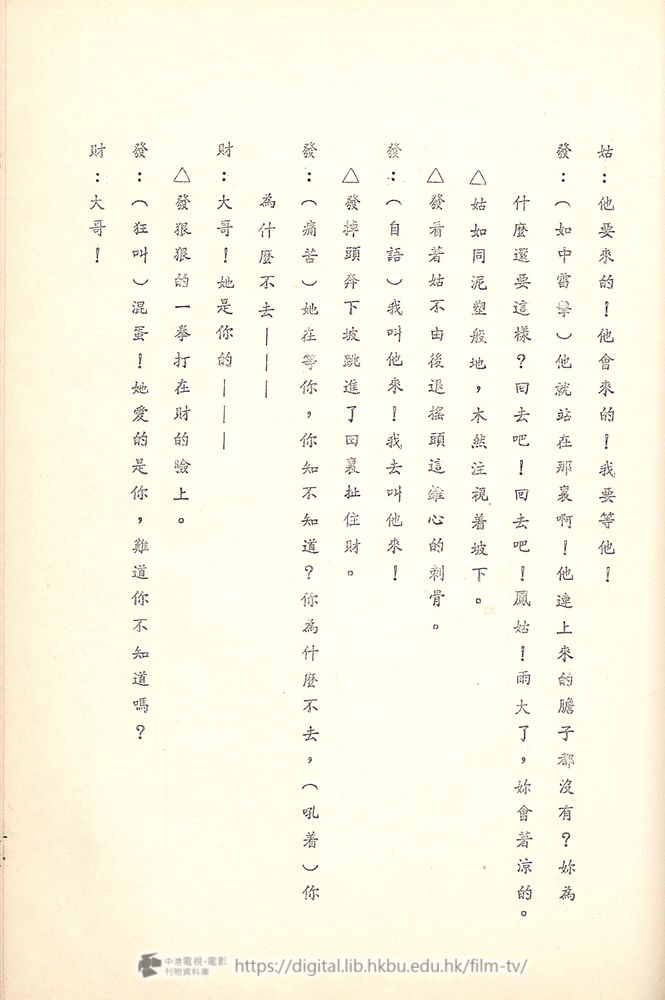 姑：他要來的！他會來的！我要等他！
發：（如中雷擊）他就站在那裏啊！他連上來的膽子都沒有？妳為
什麼還要這樣？回去吧！回去吧！鳳姑！雨大了，妳會著涼的。
△姑如同泥塑般地，木然注視着坡下。
△發看着姑不由後退搖頭這錐心的刺骨。
發：（自語）我叫他來！我去叫他來！
△發掉頭奔下坡跳進了田裏扯住財。
發：（痛苦）她在等你，你知不知道？你為什麼不去，（吼着）你
為什麼不去———
財：大哥！她是你的———
△發狠狠的一拳打在財的臉上。
發：（狂叫）混蛋！她愛的是你，難道你不知道嗎？
財：大哥！
中港電視·電影
刊物資料庫
https://digital.lib.hkbu.edu.hk/film-tv/